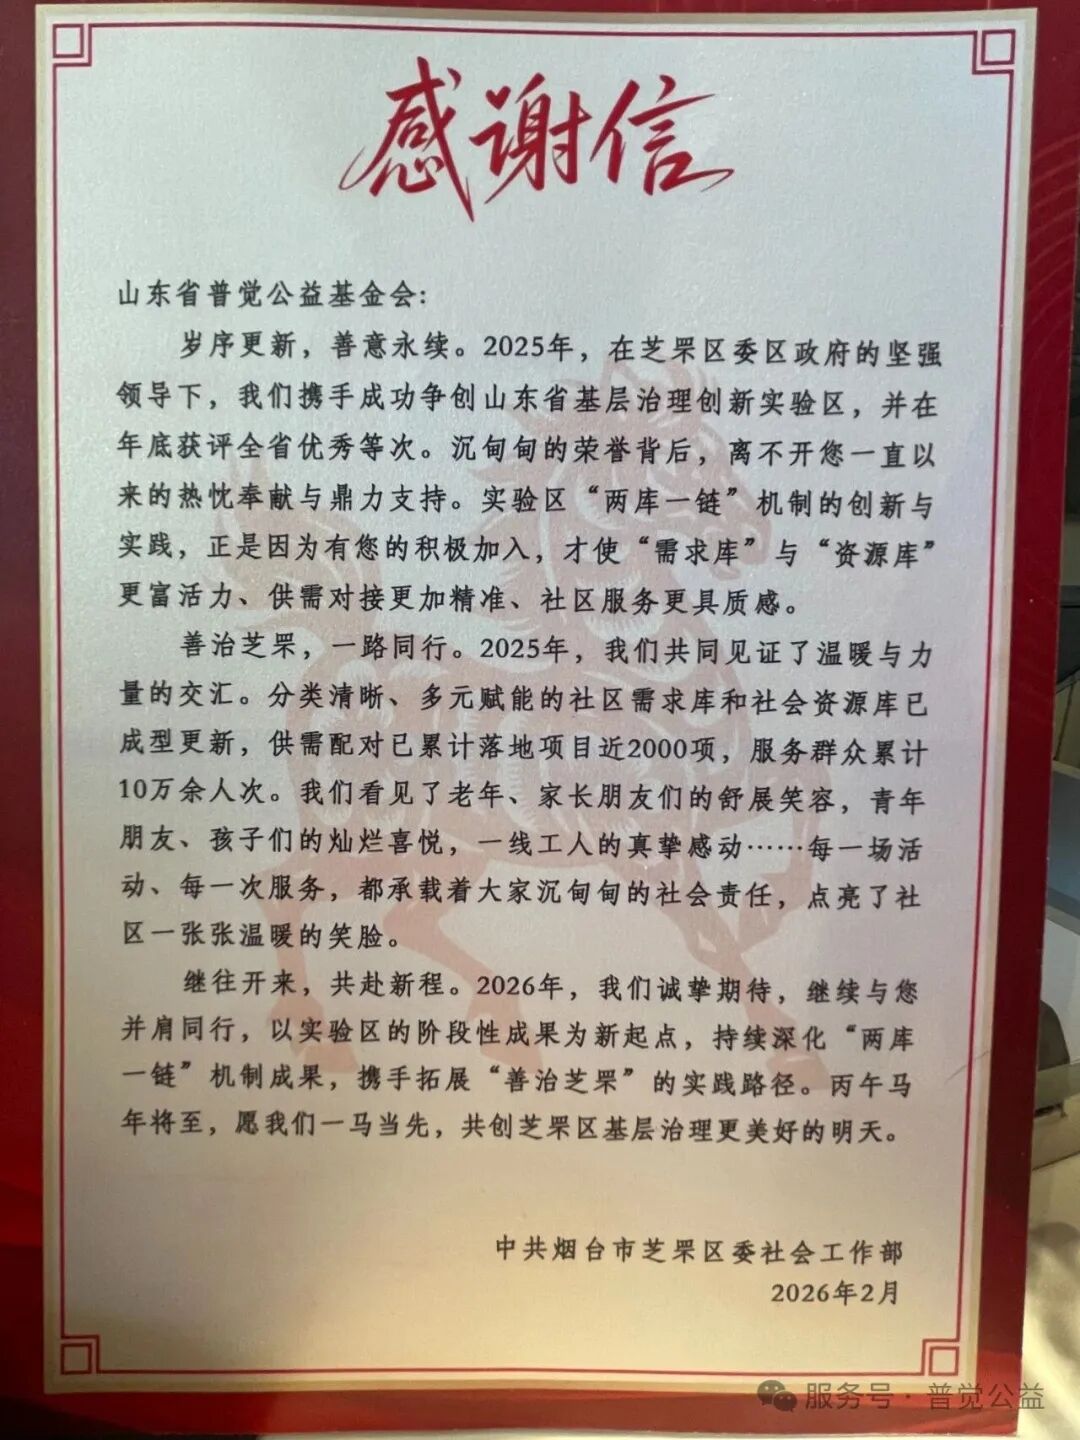 感谢信
山东省普觉公益基金会：
岁序更新，善意永续。2025年，在芝罘区委区政府的坚强
领导下，我们携手成功争创山东省基层治理创新实验区，并在
年底获评全省优秀等次。沉甸甸的荣誉背后，离不开您一直以
来的热忱奉献与鼎力支持。实验区“两库一链”机制的创新与
实践，正是因为有您的积极加入，才使“需求库”与“资源库”
更富活力、供需对接更加精准、社区服务更具质感。
善治芝罘，一路同行。2025年，我们共同见证了温暖与力
量的交汇。分类清晰、多元赋能的社区需求库和社会资源库已
成型更新，供需配对已累计落地项目近2000项，服务群众累计
10万余人次。我们看见了老年、家长朋友们的舒展笑容，青年
朋友、孩子们的灿烂喜悦，一线工人的真挚感动……每一场活
动、每一次服务，都承载着大家沉甸甸的社会责任，点亮了社
区一张张温暖的笑脸。
继往开来，共赴新程。2026年，我们诚挚期待，继续与您
并肩同行，以实验区的阶段性成果为新起点，持续深化“两库
一链”机制成果，携手拓展“善治芝罘”的实践路径。丙午马
年将至，愿我们一马当先，共创芝罘区基层治理更美好的明天。
中共烟台市芝罘区委社会工作部
2026年2月
服务号·普觉公益